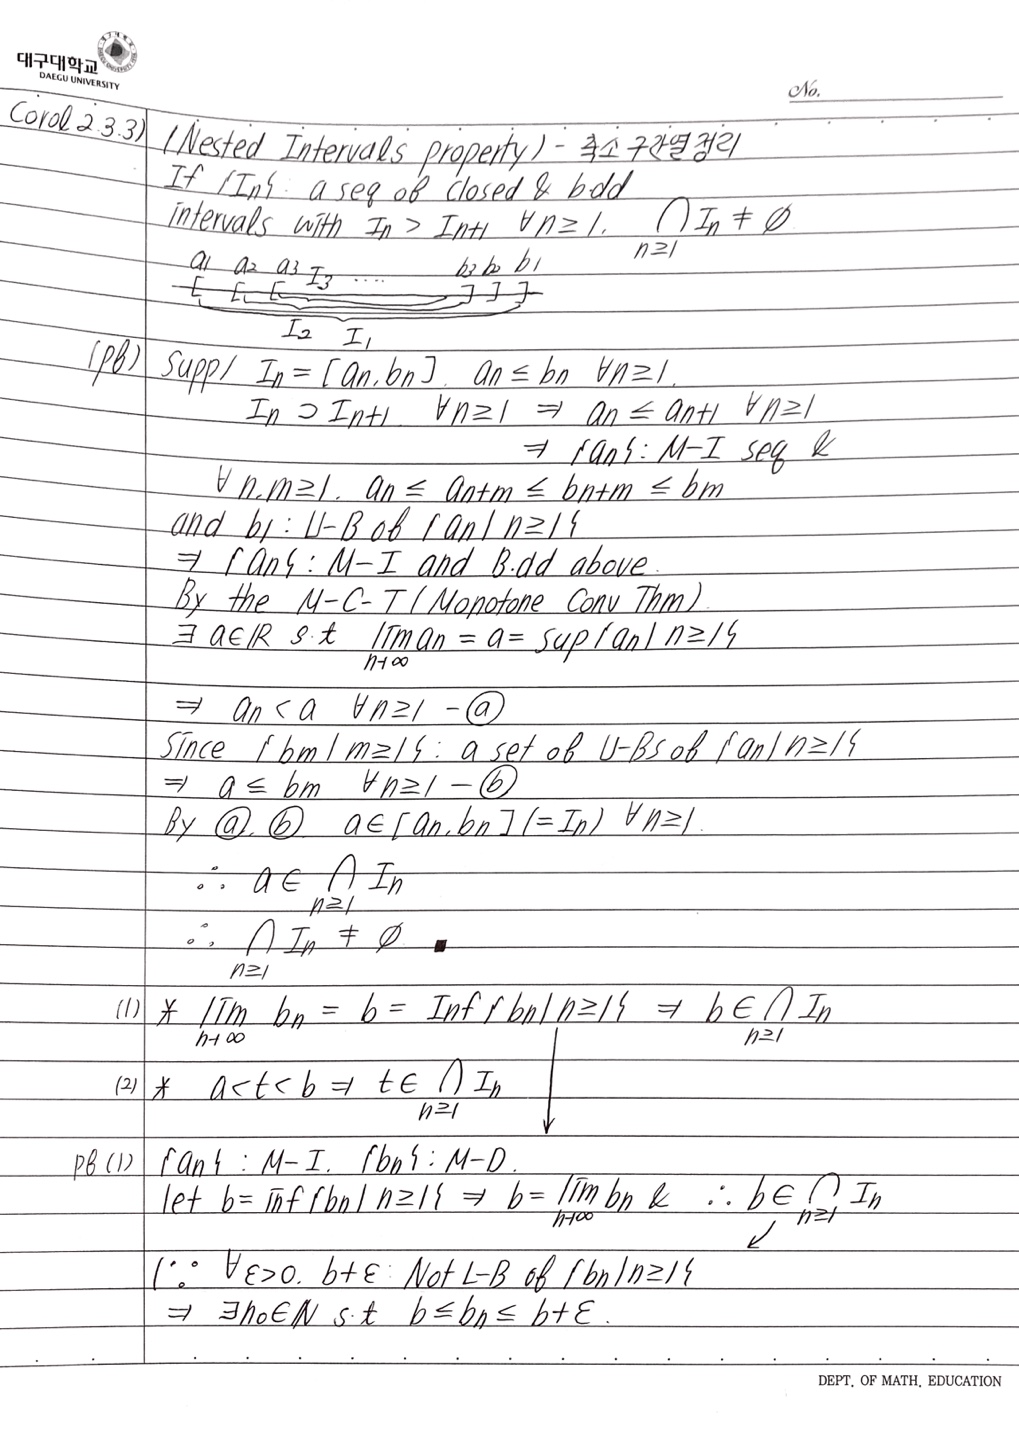 대구대학교
DAEGU UNIVERSITY
No.
Corol 2.3.3) (Nested Intervals property) - 축소구간열정리
If {In}: a seq of closed & b.dd
intervals with In > In+1 ∀n≥1. ⋂ In ≠ ∅
n≥1
a1 a2 a3 I3 .... b3 b2 b1
I2 I1
(pf) Supp/ In = [an, bn]. an ≤ bn ∀n≥1.
In ⊃ In+1 ∀n≥1 ⇒ an ≤ an+1 ∀n≥1
⇒ {an}: M-I seq &
∀n.m≥1. an ≤ an+m ≤ bn+m ≤ bm
and b1: U-B of {an | n≥1}
⇒ {an}: M-I and B.dd above.
By the M-C-T (Monotone Conv Thm)
∃a∈ℝ s.t lim an = a = sup{an | n≥1}
n→∞
⇒ an < a ∀n≥1 - ⓐ
Since {bm | m≥1}: a set of U-Bs of {an | n≥1}
⇒ a ≤ bm ∀n≥1 - ⓑ
By ⓐ, ⓑ a∈[an, bn] (=In) ∀n≥1.
∴ a∈ ⋂ In
n≥1
∴ ⋂ In ≠ ∅ ■
n≥1
(1) * lim bn = b = Inf{bn | n≥1} ⇒ b∈ ⋂ In
n→∞ n≥1
(2) * a<t<b ⇒ t∈ ⋂ In
n≥1
pf (1) {an}: M-I. {bn}: M-D.
let b = inf{bn | n≥1} ⇒ b = lim bn & ∴ b∈ ⋂ In
n→∞ n≥1
(∵ ∀ε>0. b+ε: Not L-B of {bn | n≥1}
⇒ ∃n0∈N s.t b ≤ bn ≤ b+ε.
DEPT. OF MATH. EDUCATION